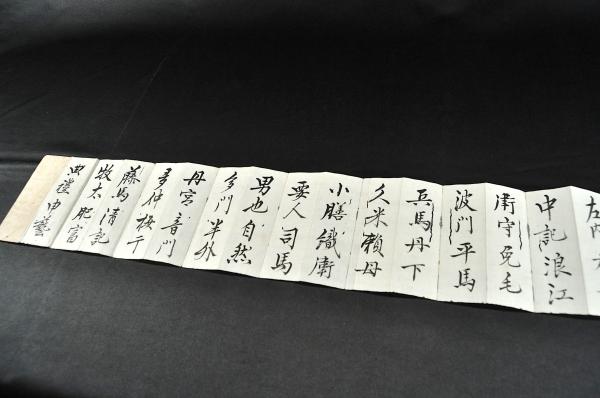 中記浪江
衛守兎毛
波門平馬
兵馬丹下
久米頼母
小膳織衛
要人司馬
男也自然
多門半外
丹宮音門
多仲梅干
藤馬清記
牧太肥富